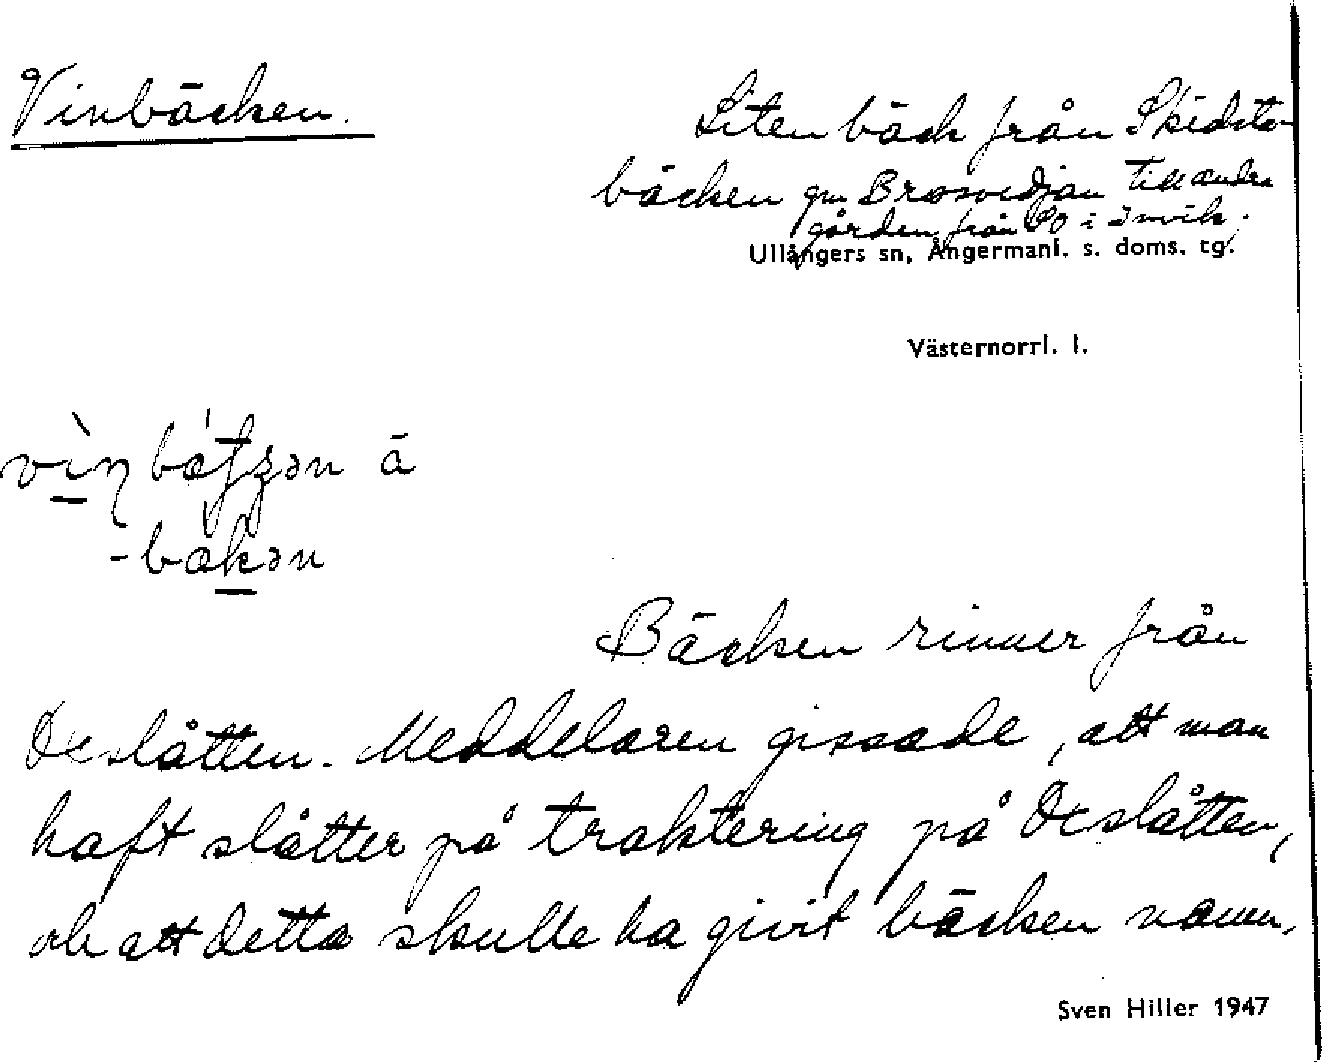 Vinbäcken.
Liten bäck från Skidsta-
bäcken gm Brosvedjan till andra
gården från SO i Invik.
Ullångers sn, Ångermanl. s. doms. tg.
Västernorrl. l.
-bakən
Bäcken rinner från
Ocslåtten. Meddelaren gissade, att man
haft slåtter på traktering på Ocslåtten,
och att detta skulle ha givit bäcken namn.
Sven Hiller 1947